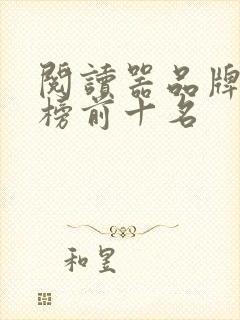 閱讀器品牌
榜前十名
和昱